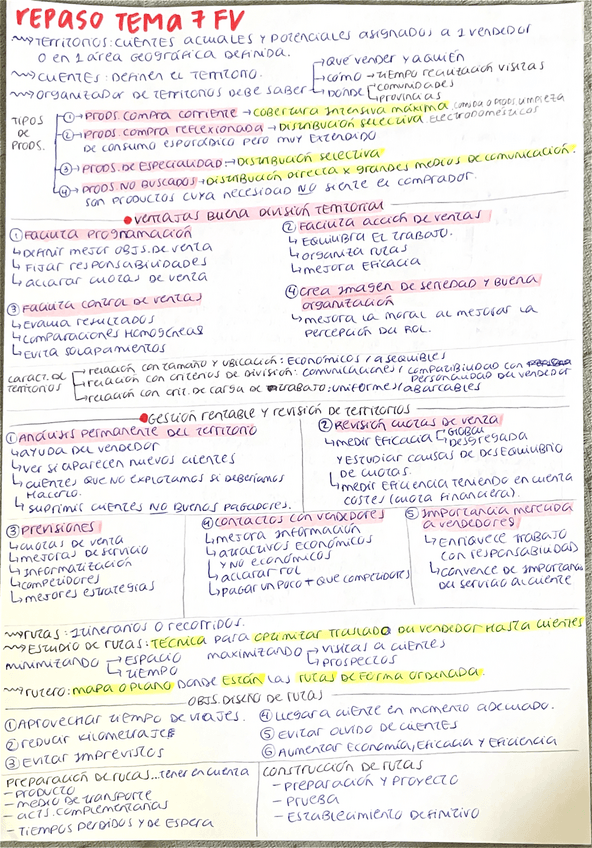 REPASO TEMA 7 FV
TERRITORIOS: CUENTES ACTUALES Y POTENCIALES ASIGNADOS A 1 VENDEDOR
O EN 1 ÁREA GEOGRÁFICA DEFINIDA.
CLIENTES: DEFINEN EL TERRITORIO.
ORGANIZADOR DE TERRITORIOS DEBE SABER
QUÉ VENDER Y A QUIÉN
CÓMO → TIEMPO REALIZACIÓN VISITAS
DÓNDE
COMUNIDADES
PROVINCIAS
TIPOS DE PRODS.
① PRODS. COMPRA CORRIENTE → COBERTURA INTENSIVA MÁXIMA, COMIDA O PRODS. LIMPIEZA
② PRODS. COMPRA REFLEXIONADA → DISTRIBUCIÓN SELECTIVA ELECTRODOMÉSTICOS
DE CONSUMO ESPORÁDICO PERO MUY EXTENDIDO
③ PRODS. DE ESPECIALIDAD → DISTRIBUCIÓN SELECTIVA
④ PRODS. NO BUSCADOS → DISTRIBUCIÓN DIRECTA X GRANDES MEDIOS DE COMUNICACIÓN.
SON PRODUCTOS CUYA NECESIDAD NO SIENTE EL COMPRADOR.
VENTAJAS BUENA DIVISIÓN TERRITORIAL
① FACILITA PROGRAMACIÓN
↳ DEFINIR MEJOR OBJS. DE VENTA
↳ FIJAR RESPONSABILIDADES
↳ ACLARAR CUOTAS DE VENTA
② FACILITA ACCIÓN DE VENTAS
↳ EQUILIBRA EL TRABAJO.
↳ ORGANIZA RUTAS
↳ MEJORA EFICACIA
③ FACILITA CONTROL DE VENTAS
↳ EVALÚA RESULTADOS
↳ COMPARACIONES HOMOGÉNEAS
↳ EVITA SOLAPAMIENTOS
④ CREA IMAGEN DE SERIEDAD Y BUENA
ORGANIZACIÓN
↳ MEJORA LA MORAL AL MEJORAR LA
PERCEPCIÓN DEL ROL.
CARACT. DE TERRITORIOS
RELACIÓN CON TAMAÑO Y UBICACIÓN: ECONÓMICOS / ASEQUIBLES
RELACIÓN CON CRITERIOS DE DIVISIÓN: COMUNICACIONES / COMPATIBILIDAD CON
PERSONALIDAD DEL VENDEDOR
RELACIÓN CON CRIT. DE CARGA DE TRABAJO: UNIFORMES / ABARCABLES
GESTIÓN RENTABLE Y REVISIÓN DE TERRITORIOS
① ANÁLISIS PERMANENTE DEL TERRITORIO
↳ AYUDA DEL VENDEDOR
↳ VER SI APARECEN NUEVOS CLIENTES
↳ CLIENTES QUE NO EXPLOTAMOS SI DEBERÍAMOS
HACERLO.
↳ SUPRIMIR CLIENTES NO BUENOS PAGADORES.
② REVISIÓN CUOTAS DE VENTA
↳ MEDIR EFICACIA
GLOBAL
DESGREGADA
Y ESTUDIAR CAUSAS DE DESEQUILIBRIO
DE CUOTAS.
↳ MEDIR EFICIENCIA TENIENDO EN CUENTA
COSTES (CUOTA FINANCIERA).
③ PREVISIONES
↳ CUOTAS DE VENTA
↳ MEJORAS DE SERVICIO
↳ INFORMATIZACIÓN
↳ COMPETIDORES
↳ MEJORES ESTRATEGIAS
④ CONTACTOS CON VENDEDORES
↳ MEJORA INFORMACIÓN
↳ ATRACTIVOS ECONÓMICOS
Y NO ECONÓMICOS
↳ ACLARAR ROL
↳ PAGAR UN POCO + QUE COMPETIDORES
⑤ IMPORTANCIA MERCADO
A VENDEDORES
↳ ENRIQUECE TRABAJO
CON RESPONSABILIDAD
↳ CONVENCE DE IMPORTANCIA
DEL SERVICIO AL CLIENTE
RUTAS: ITINERARIOS O RECORRIDOS.
ESTUDIO DE RUTAS: TÉCNICA PARA OPTIMIZAR TRASLADO DEL VENDEDOR HASTA CLIENTES
MINIMIZANDO
ESPACIO
TIEMPO
MAXIMIZANDO
VISITAS A CLIENTES
PROSPECTOS
RUTERO: MAPA O PLANO DONDE ESTÁN LAS RUTAS DE FORMA ORDENADA.
OBJS. DISEÑO DE RUTAS
① APROVECHAR TIEMPO DE VIAJES.
② REDUCIR KILOMETRAJES
③ EVITAR IMPREVISTOS
④ LLEGAR A CLIENTE EN MOMENTO ADECUADO.
⑤ EVITAR OLVIDO DE CLIENTES
⑥ AUMENTAR ECONOMÍA, EFICACIA Y EFICIENCIA
PREPARACIÓN DE RUTAS...TENER EN CUENTA
- PRODUCTO
- MEDIO DE TRANSPORTE
- ACTS. COMPLEMENTARIAS
- TIEMPOS PERDIDOS Y DE ESPERA
CONSTRUCCIÓN DE RUTAS
- PREPARACIÓN Y PROYECTO
- PRUEBA
- ESTABLECIMIENTO DEFINITIVO